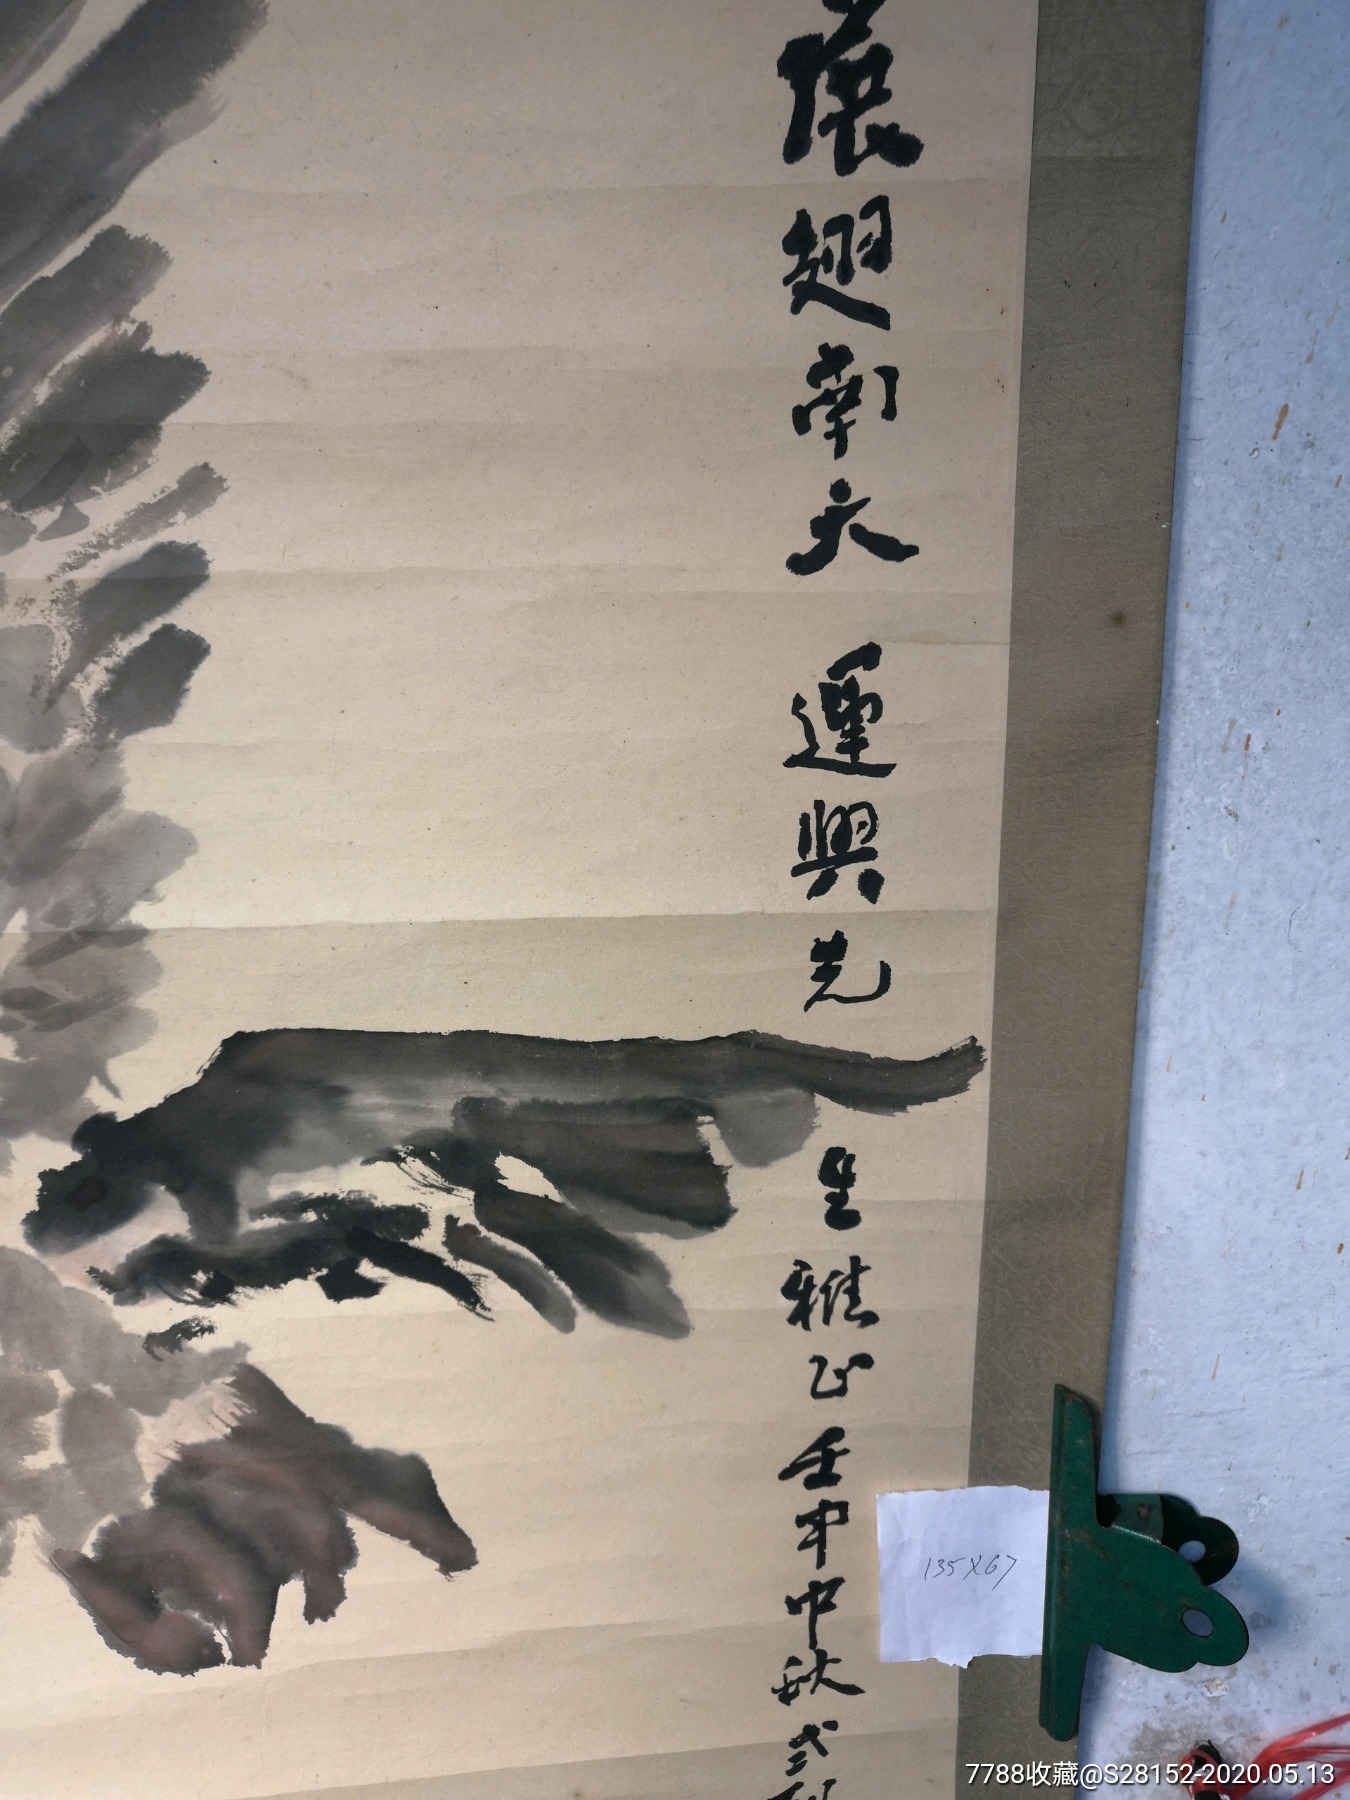 翅南天 運興先生雅正 壬申中秋
135X67
7788收藏@S28152-2020.05.13